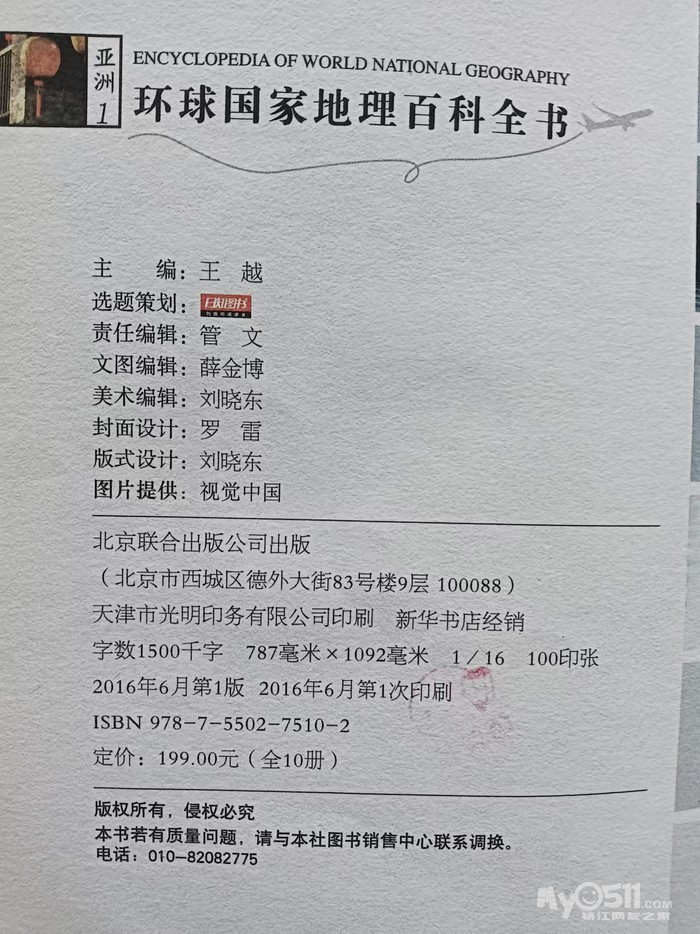 亚洲1
ENCYCLOPEDIA OF WORLD NATIONAL GEOGRAPHY
环球国家地理百科全书
主 编：王 越
选题策划：日知图书
责任编辑：管 文
文图编辑：薛金博
美术编辑：刘晓东
封面设计：罗 雷
版式设计：刘晓东
图片提供：视觉中国
北京联合出版公司出版
（北京市西城区德外大街83号楼9层 100088）
天津市光明印务有限公司印刷 新华书店经销
字数1500千字 787毫米×1092毫米 1/16 100印张
2016年6月第1版 2016年6月第1次印刷
ISBN 978-7-5502-7510-2
定价：199.00元（全10册）
版权所有，侵权必究
本书若有质量问题，请与本社图书销售中心联系调换。
电话：010-82082775
My0511.COM
镇江网友之家